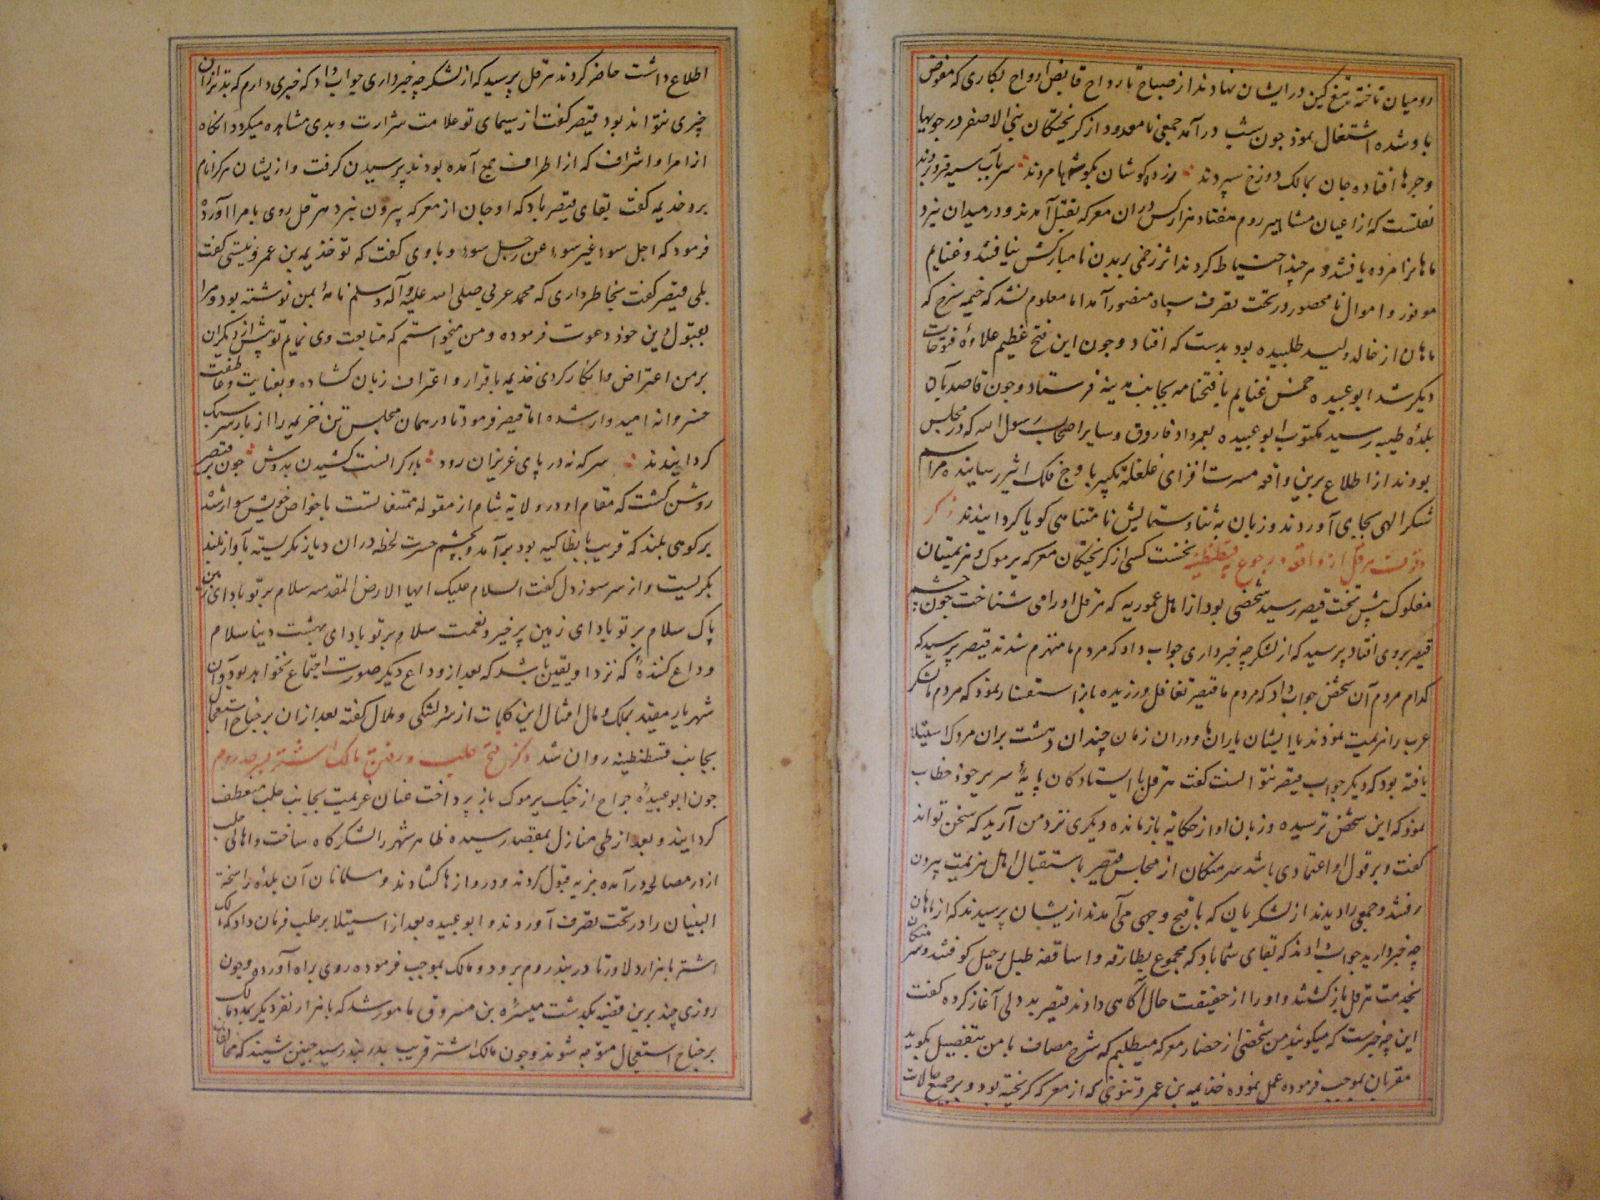 رومیان تاخته تیغ کین در ایشان نهادند از صباح تا رواح قابض ارواح بکاری که مفوض
باو شده اشتغال نمود چون شب درآمد جمعی نامعدود از کریختکان بنی الاصفر در جویها
وجرها افتاده جان بمالک دوزخ سپردند
نقلست که از اعیان مشاهیر روم هفتاد هزار کس دران معرکه بقتل آمدند و در میدان نبرد
ماهانرا مرده یافتند و هرچند احتیاط کردند اثر زخمی بر بدن نامبارکش نیافتند و غنایم
موفور و اموال نامحصور در تحت تصرف سپاه منصور آمد اما معلوم نشد که خیمه سرخ که
ماهان از خالد ولید طلبیده بود بدست که افتاد و چون این فتح عظیم علاوه فتوحات
دیکر شد ابو عبیده خمس غنایم با فتحنامه بجانب مدینه فرستاد و چون قاصد بآن
بلده طیبه رسید مکتوب ابو عبیده بعمر داد فاروق و سایر اصحاب رسول الله که در مجلس
بودند از اطلاع برین واقعه مسرت افزای غلغله تکبیر باوج فلک اثیر رسانیده مراسم
شکر الهی بجای آوردند و زبان به ثنا و ستایش نامتناهی کویا کردانیدند ذکر
وقوف هرقل ازواقعه و رجوع بقسطنطنیه نخست کسی از کریختکان معرکه یرموک و هزیمتیان
مفلوک پیش تخت قیصر رسید شخصی بود از اهل عموریه که هرقل او را می شناخت چون چشم
قیصر بروی افتاد پرسید که از لشکر چه خبر داری جواب داد که مردم ما منهزم شدند قیصر پرسید که
کدام مردم آن شخص جواب داد که مردم ما قیصر تغافل ورزیده باز استفسار نمود که مردم ما لشکر
عرب را هزیمت نمودند یا ایشان یاران ما و دران زمان چندان دهشت بران مردک استیلا
یافته بود که دیکر جواب قیصر نتوانست کفت هرقل با ایستادکان پایه سریر خود خطاب
نمود که این شخص ترسیده و زبان او از حکایه بازمانده دیکری نزد من آرید که سخن تواند
کفت و بر قول او اعتمادی باشد سرهنکان از مجلس قیصر باستقبال اهل هزیمت بیرون
رفتند و جمعی را دیدند از لشکریان که باقبح وجهی می آمدند از یشان پرسیدند که از ماهان
چه خبر دارید جواب دادند که بقای شما باد که مجموع بطارقه و اساقفه طبل رحیل کوفتند و سرهنکان
بخدمت هرقل بازکشتند و او را از حقیقت حال آکاهی دادند قیصر بددلی آغاز کرده کفت
این چه خبرست که میکویند من شخصی از حضار معرکه میطلبم که شرح مصاف با من بتفصیل بکوید
مقربان بموجب فرموده عمل نموده خذیمه بن عمرو تنوخی که از معرکه کریخته بود و بر جمیع حالات
اطلاع داشت حاضر کردند هرقل پرسید که از لشکر چه خبر داری جواب داد که خبری دارم که بدتر ازان
چیزی نتواند بود قیصر کفت از سیمای تو علامت شرارت و بدی مشاهده میکردد آنکاه
از امرا و اشراف که از اطراف جمع آمده بودند پرسیدن کرفت و از یشان هرکرا نام
برد خذیمه کفت بقای قیصر باد که او جان از معرکه بیرون نبرد هرقل روی بامرا آورده
فرمود که اجل سوء غیر سوء عن رجل سوء و باوی کفت که تو خذیمه بن عمرو نیستی کفت
بلی قیصر کفت بخاطر داری که محمد عربی صلی الله علیه وآله وسلم نامه بمن نوشته بود و مرا
بقبول دین خود دعوت فرموده و من میخواستم که متابعت وی نمایم تو پیش از دیکران
بر من اعتراض و انکار کردی خذیمه باقرار و اعتراف زبان کشاده و بعنایت و عاطفت
خسروانه امیدوار شده اما قیصر فرمود تا در همان مجلس تن خذیمه را از بار سر سبک
کردانیدند سر که نه در پای عزیزان رود بار کرانست کشیدن بدوش چون بر قیصر
روشن کشت که مقام او در ولایه شام از مقوله ممتنعاتست با خواص خویش سوار شد
بر کوهی بلند که قریب بانطاکیه بود برآمد و بچشم حسرت لحظه دران دیار نکریسته بآواز بلند
بکریست و از سر سوز دل کفت السلام علیک ایها الارض المقدسه سلام بر تو باد ای زمین
پاک سلام بر تو باد ای زمین پر خیر و نعمت سلام بر تو باد ای بهشت دنیا سلام
وداع کننده که نزد او یقین باشد که بعد از وداع دیکر صورت اجتماع نخواهد بود و آن
شهریار مقید بملک و مال امثال این کلمات از سر دلتنکی و ملال کفته بعد ازان بر جناح استعجال
بجانب قسطنطینه روان شد ذکر فتح حلب و رفتن مالک اشتر بسرحد روم
چون ابو عبیده جراح از جنک یرموک باز پرداخت عنان عزیمت بجانب حلب منعطف
کردانید و بعد از طی منازل بمقصد رسیده ظاهر شهر را لشکرکاه ساخت و اهالی حلب
از در مصالحه درآمده جزیه قبول کردند و دروازها کشادند و مسلمانان آن بلده راسخة
البنیان را در تحت تصرف آوردند و ابو عبیده بعد از استیلا بر حلب فرمان داد که مالک
اشتر با هزار دلاور تا دربند روم برود و مالک بموجب فرموده روی براه آورده و چون
روزی چند برین قضیه بکذشت میسره بن مسروق مامور شد که با هزار نفر دیکر بمدد مالک
بر جناح استعجال متوجه شوند و چون مالک اشتر قریب بدربند رسید چنین شنید که مخالفان